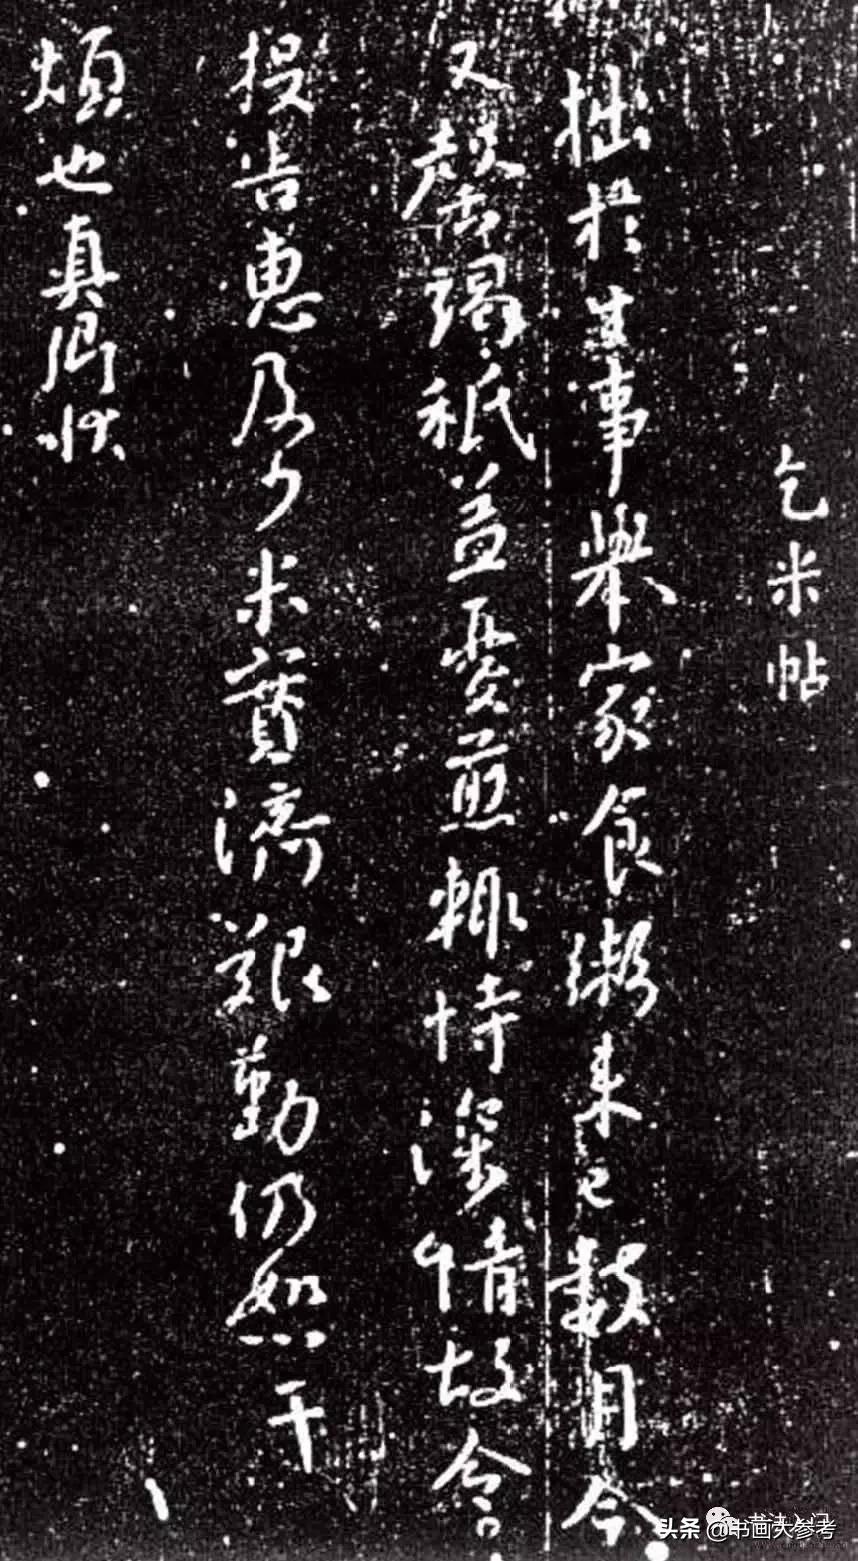 乞米帖
拙於生事舉家食粥來已數月今
又罄竭祗益憂煎輒恃深情故令
投告惠及少米實濟艱勤仍恕干
煩也真卿狀
头条 @书画大参考